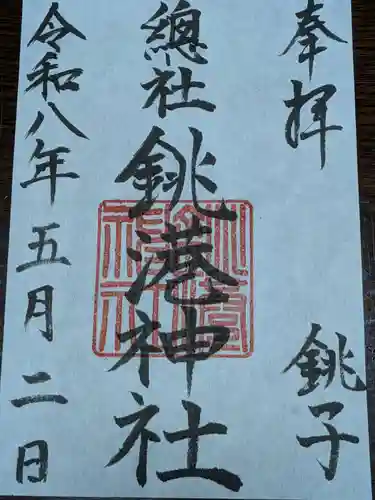 奉拝
銚子
總社
銚港神社
令和八年五月二日